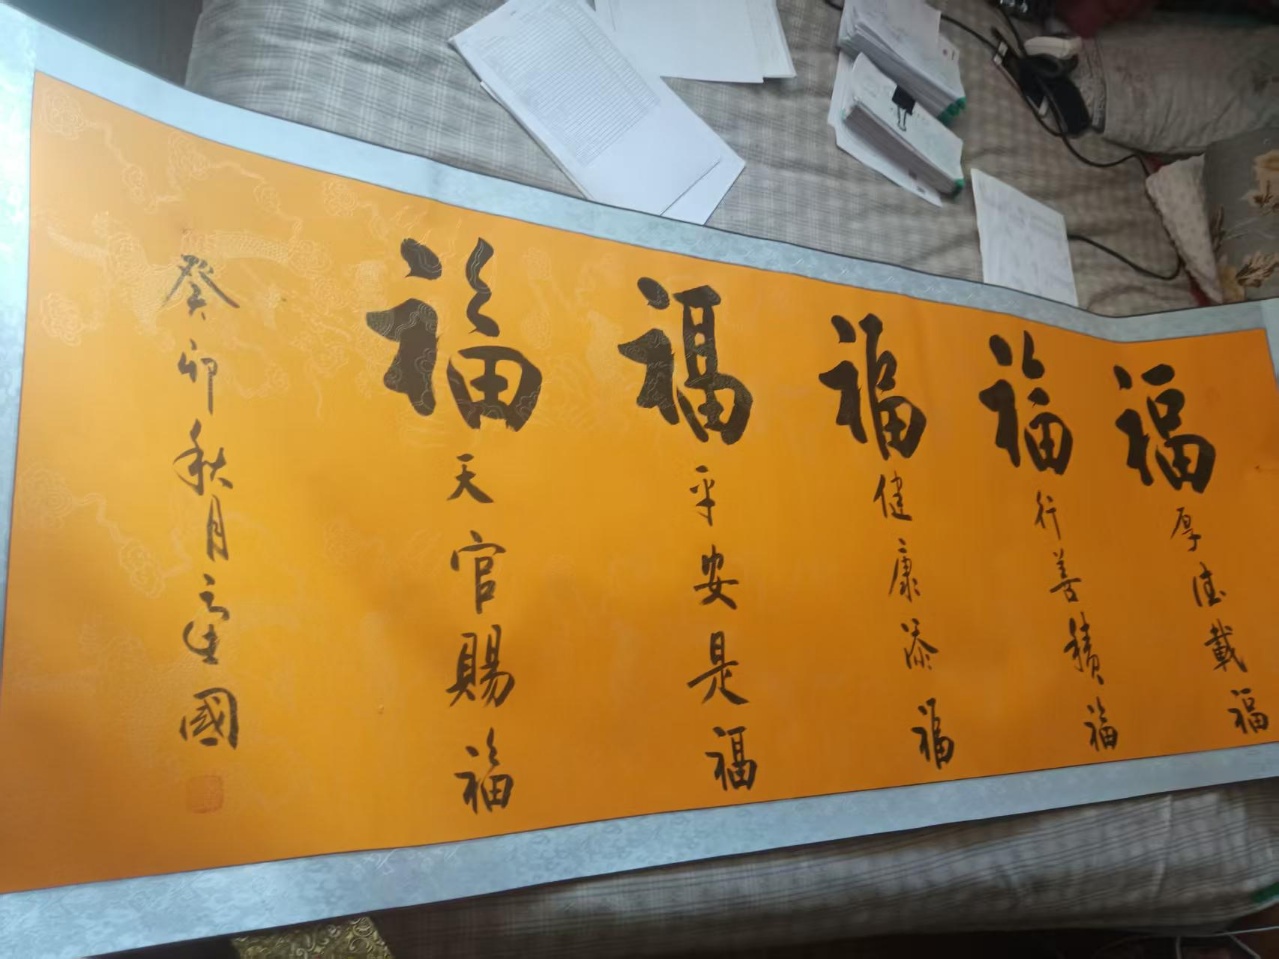 福
厚德載福
福
行善積福
福
健康添福
福
平安是福
福
天官賜福
癸卯秋月建國